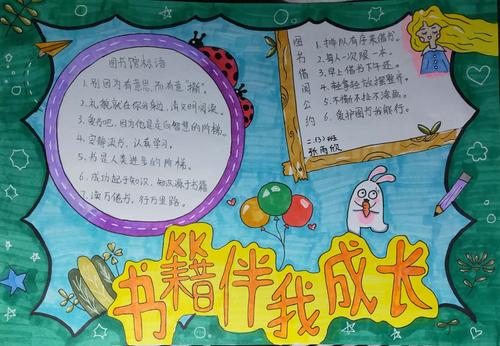 图书馆标语
1.别因为有意思,而有意“撕”。
2.礼貌就在你身轻,请文明阅读。
3.爱书吧,因为他是走向智慧的阶梯。
4.安静读书,认真学习。
5.书是人类进步的阶梯。
6.成功起于知识,知识源于书籍
7.读万卷书,行万里路。
图书借阅公约
1.排队有序来借书。
2.每人一次限一本。
3.早上借书下午还。
4.轻拿轻放摆整齐。
5.不撕不拉不涂画。
6.爱护图书我能行。
二.(3)班
张雨欣
书籍伴我成长